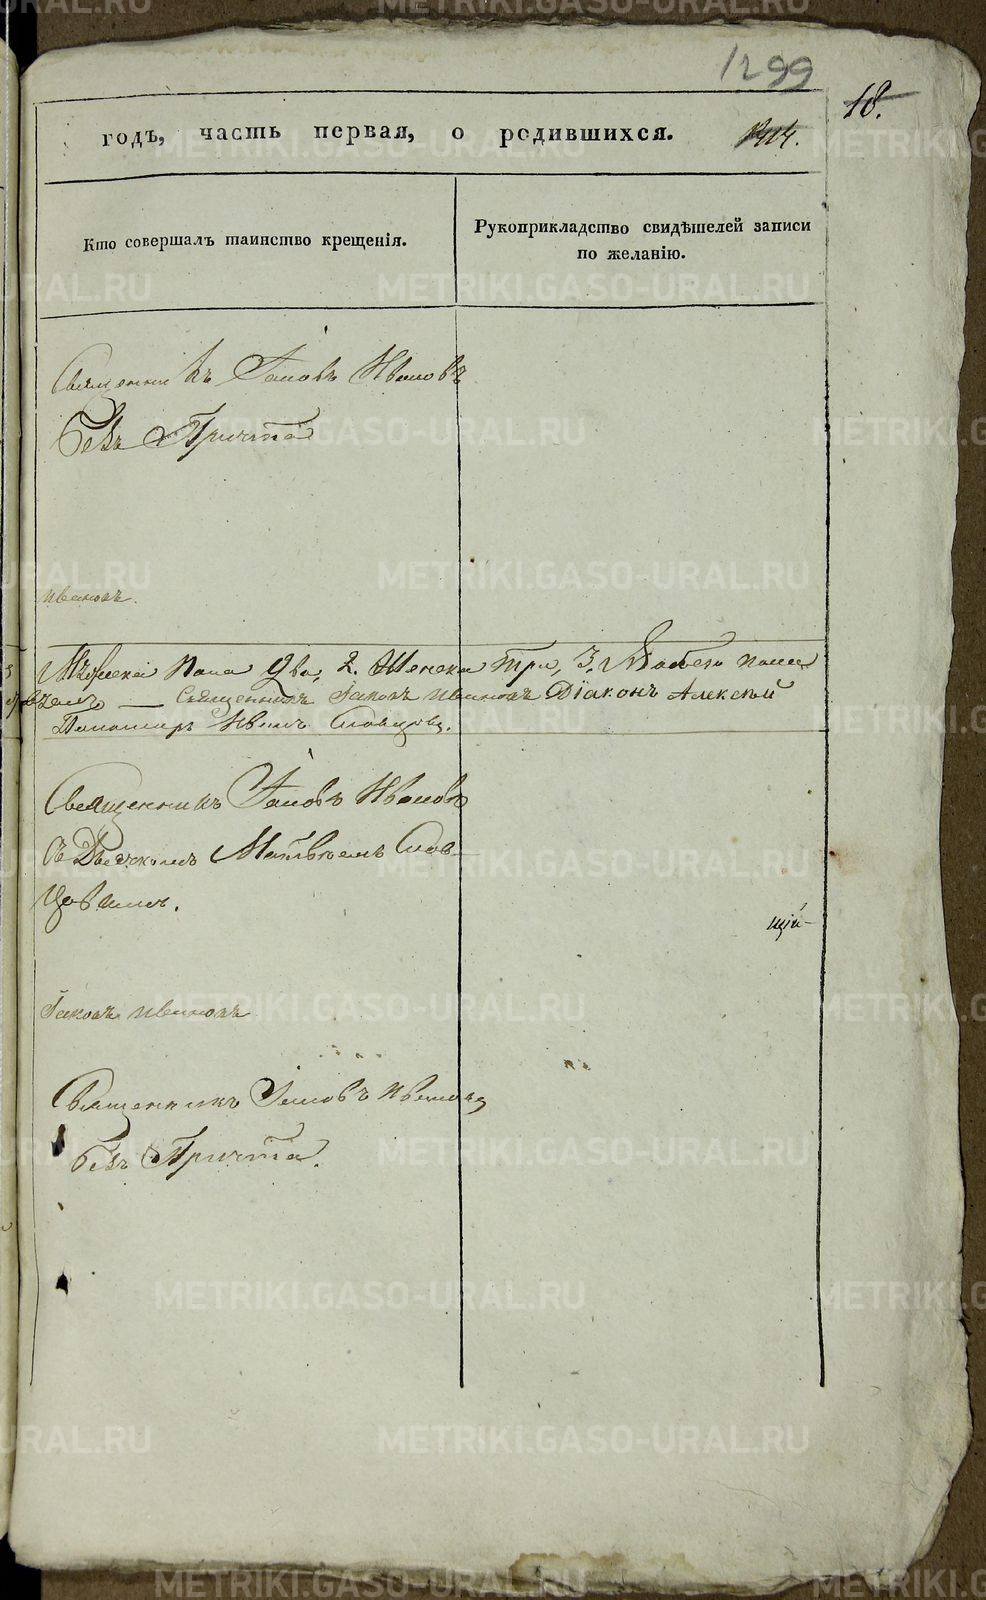 1299
18.
годъ, часть первая, о родившихся.
Кто совершалъ таинство крещенія.
Рукоприкладство свидѣтелей записи
по желанію.
Священникъ Іаковъ Ивановъ
безъ Причта
Ивановъ.
Мужеска Пола Два, 2. Женска Три, 3, Обоего пола
Священникъ Іаковъ Ивановъ Діаконъ Алексѣй
Пономарь Иванъ Словцовъ.
Священникъ Іаковъ Ивановъ
съ Дьячкомъ Матвѣемъ Слов-
цовымъ.
щій-
Іаковъ Ивановъ
Священникъ Іаковъ Ивановъ
безъ Причта.
METRIKI.GASO-URAL.RU